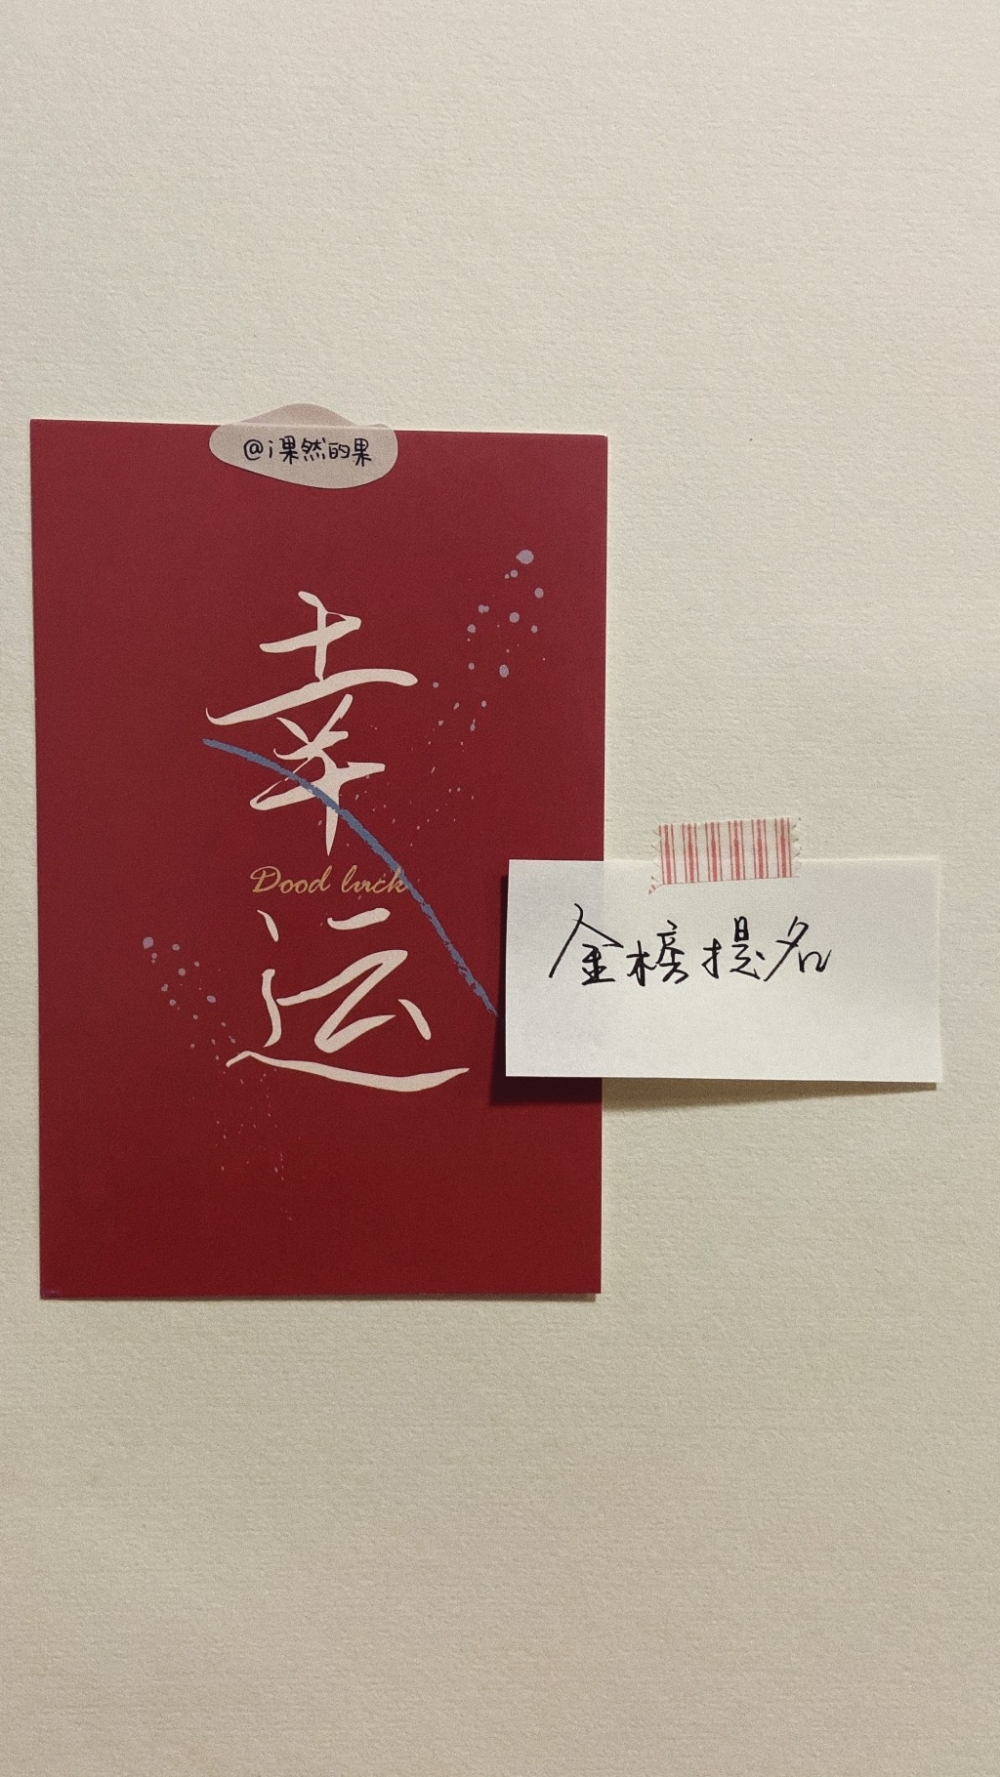 @i果然的果
幸
Dood luck
运
金榜提名